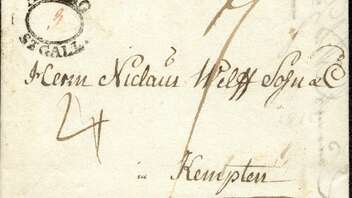 ST GALL
Herrn Niclaus Wolff Sohn & C
in Kempten